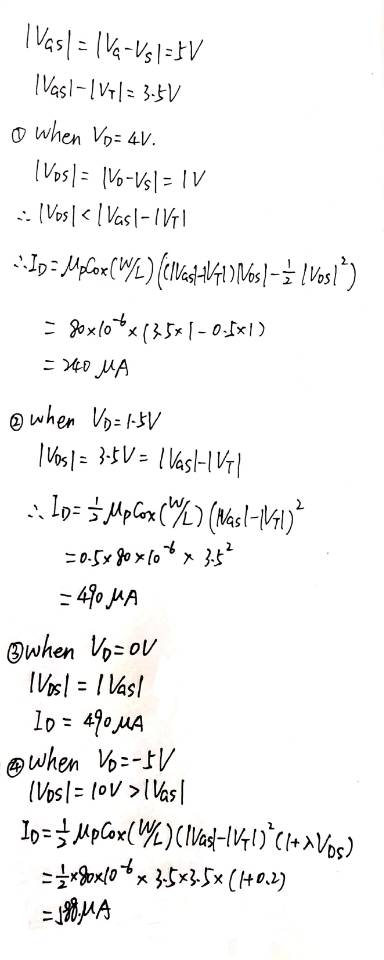 |VGS| = |VG-VS| = 5V
|VGS| - |VT| = 3.5V
① when VD = 4V.
|VDS| = |VD-VS| = 1V
∴ |VDS| < |VGS| - |VT|
∴ ID = μpCox(W/L)((|VGS|-|VT|)|VDS| - 1/2 |VDS|²)
= 80×10⁻⁶ × (3.5×1 - 0.5×1)
= 240 μA
② when VD = 1.5V
|VDS| = 3.5V = |VGS| - |VT|
∴ ID = 1/2 μpCox(W/L)(|VGS| - |VT|)²
= 0.5×80×10⁻⁶ × 3.5²
= 490 μA
③ when VD = 0V
|VDS| = |VGS|
ID = 490 μA
④ when VD = -5V
|VDS| = 10V > |VGS|
ID = 1/2 μpCox(W/L)(|VGS|-|VT|)²(1+λVDS)
= 1/2×80×10⁻⁶ × 3.5×3.5×(1+0.2)
= 588 μA